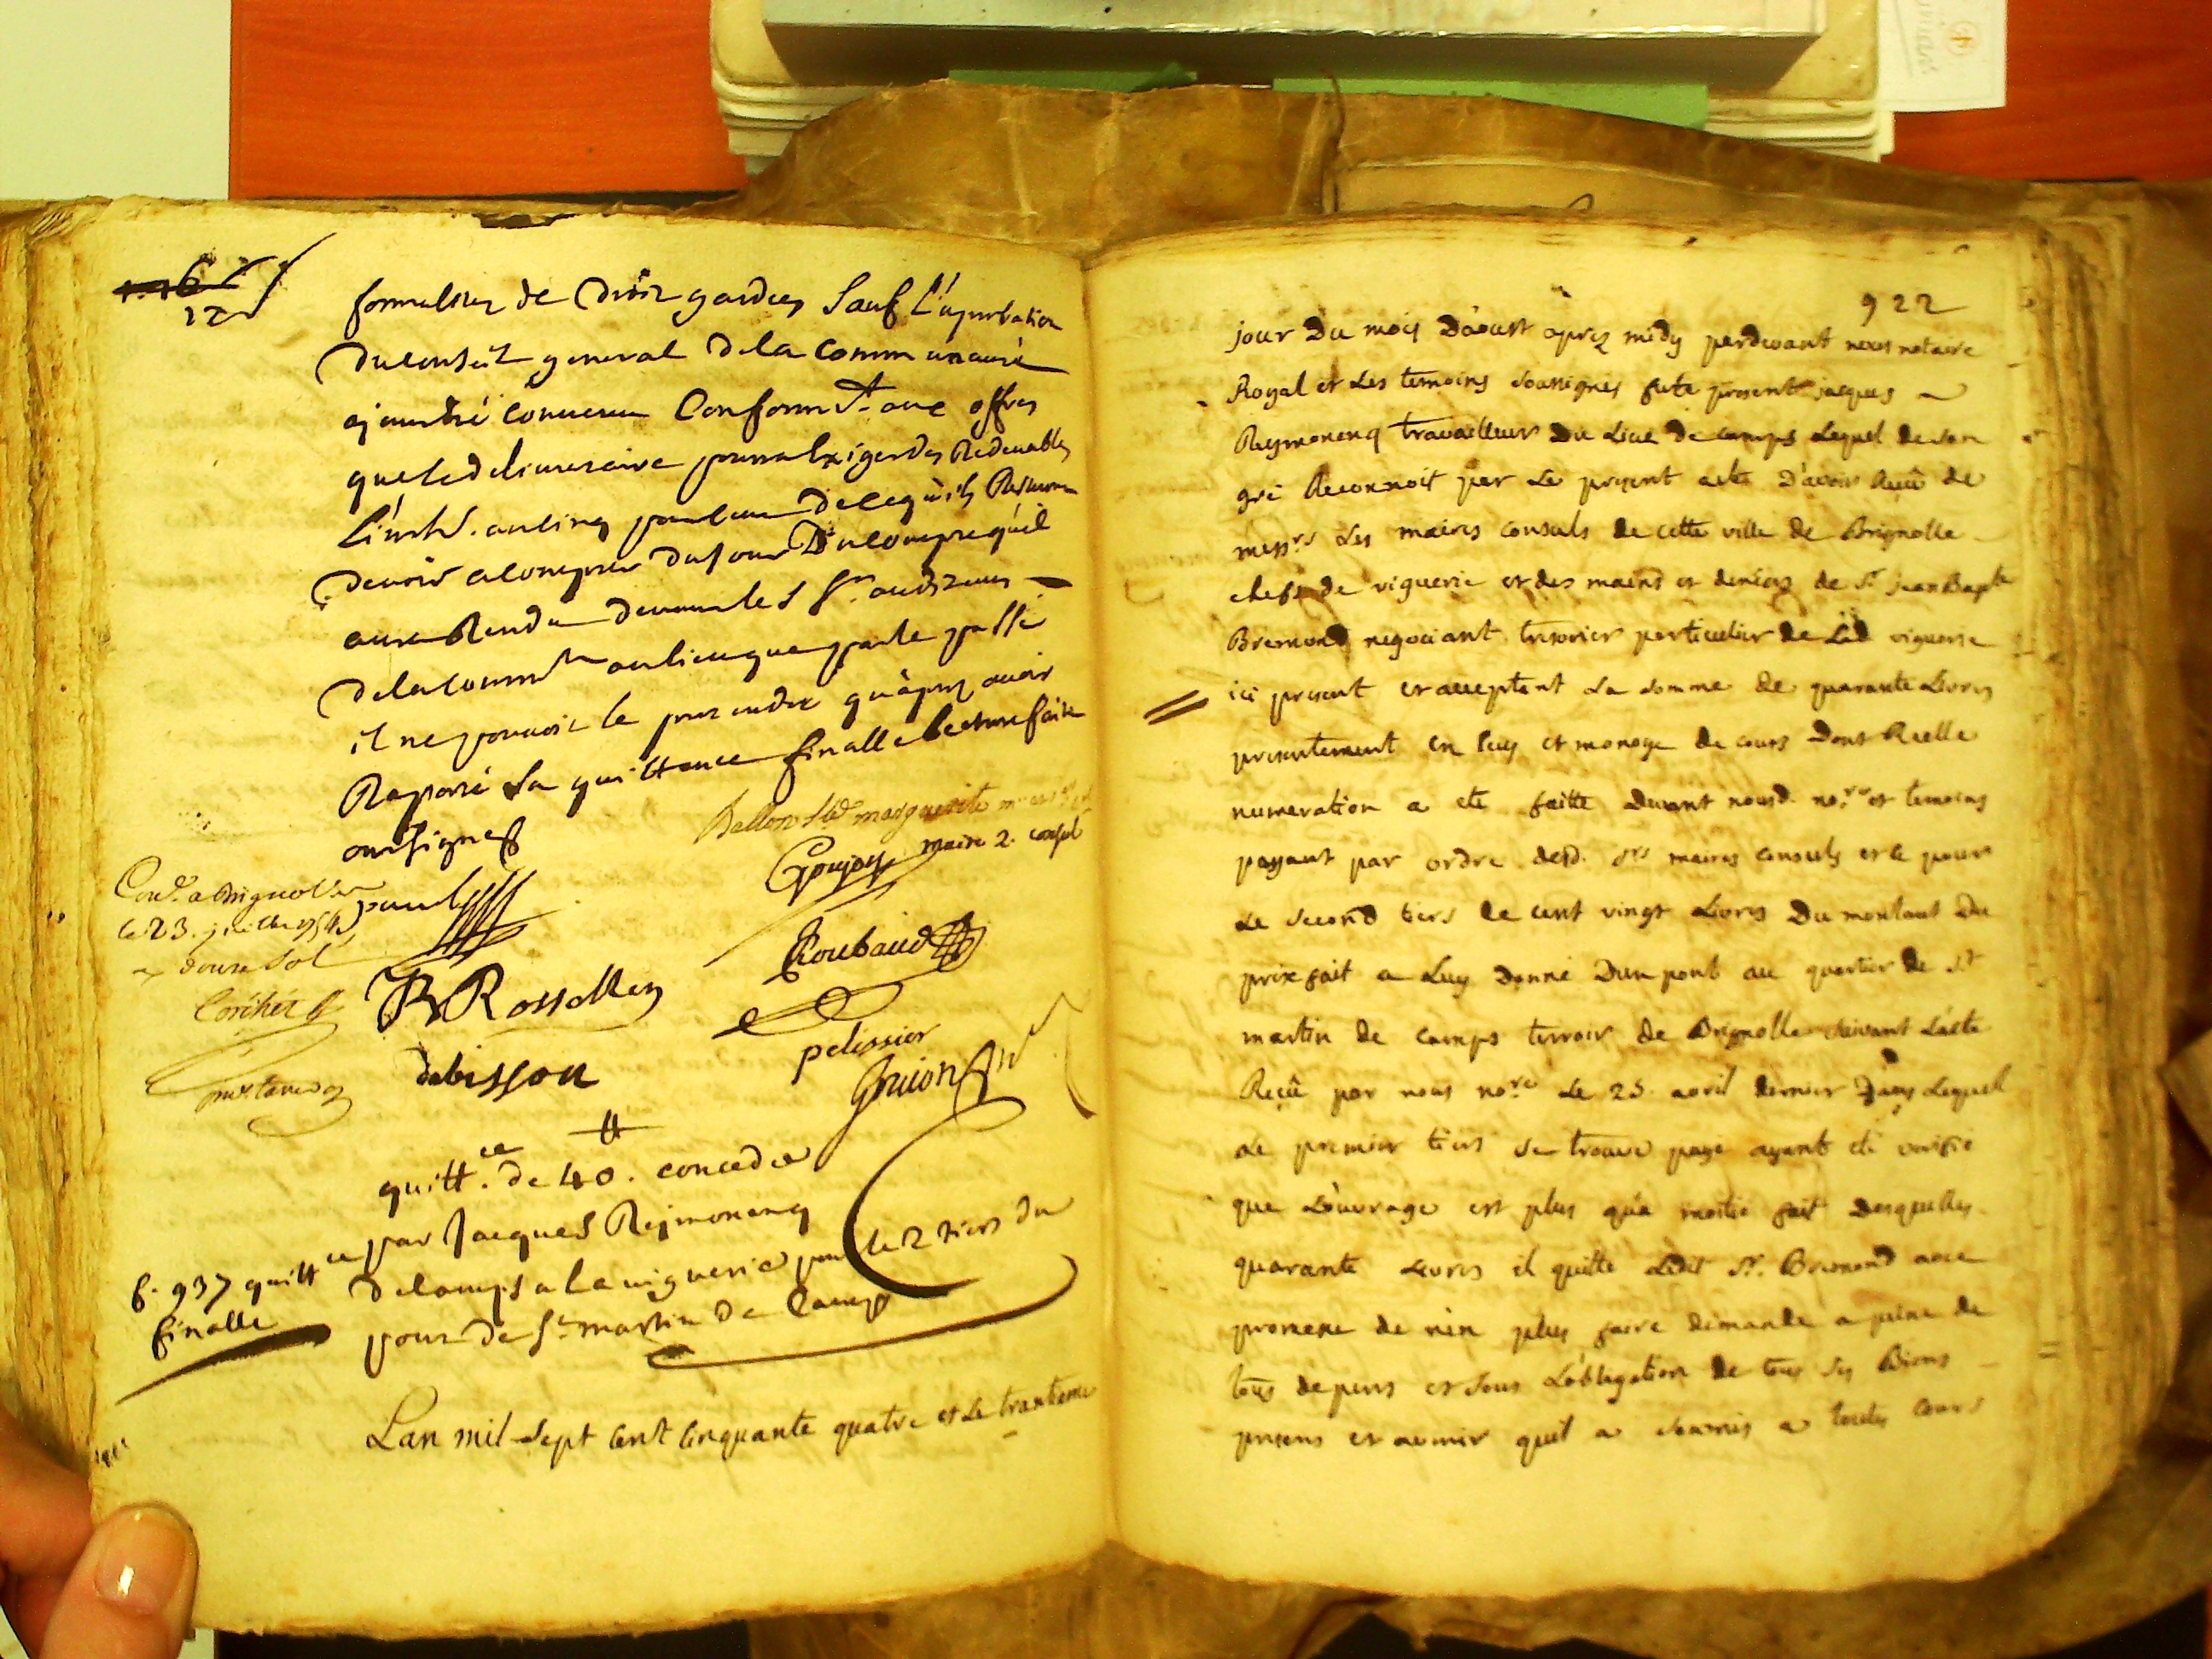 12
formalitez de droit gardées sauf l'aprobation
du conseil general de la communauté
ajoutté convenu conform.t aux offres
que le delivrataire pourra exiger des Redevables
l'int.t au cinq pour cent de ce qu'ils Resteront
devoir a compter du jour du compte qu'il
aura Rendu devant les S.rs auditeurs
de la comm.té au lieu que par le passé
il ne pouvoit le pretendre qu'àprez avoir
Raporté sa quittance finalle lecture faite
ont signés
Ballon S.te marguerite maire
maire 2. consul
Goujon
Con.lé a Brignolle
le 23. juillet 1754
R douze sol
paul
Roubaud
R Rossollin
pelissier
debisson
Guion
quitt.ce de 40.tt concedée
par Jacques Reymonenq
de Camps a la viguerie pour le 2 tiers du
pont de S.t martin de Camps
f. 937 quitt.ce
finalle
Lan mil sept cent cinquante quatre et Le trantieme
922
jour Du mois D'aoust aprez midy perdevant nous notaire
Royal et Les temoins soussignes fute present jacques
Reymonenq travailleur Du Lieu de camps Lequel de son
gré Reconnoit par Le present acte D'avoir Receu de
mess.rs Les maires consuls de cette ville de Brignolle
chefs de viguerie et des mains et deniers de S.r jean Bap.te
Bremond negociant tresorier particulier de Lad viguerie
ici present et acceptant La somme de quarante Livres
presentement en Ecus et monoye de cours Dont Reelle
numeration a eté faitte Devant nousd. no.re et temoins
payant par ordre desd. S.rs maires consuls et ce pour
Le second tiers de cent vingt Livres Du montant Du
prix fait a Luy Donné D'un pont au quartier de S.t
martin de camps terroir de Brignolle suivant L'acte
Reçeu par nous no.re Le 25. avril dernier Dans Lequel
Le premier tiers se trouve payé ayant eté verifié
que L'ouvrage est plus qu'a moitié fait Desquelles
quarante Livres il quitte Ledit S.r Bremond avec
promesse de n'en plus faire demande a peine de
tous depens et sous L'obligation de tous ses Biens
presens et avenir quil a soumis a toutes cours